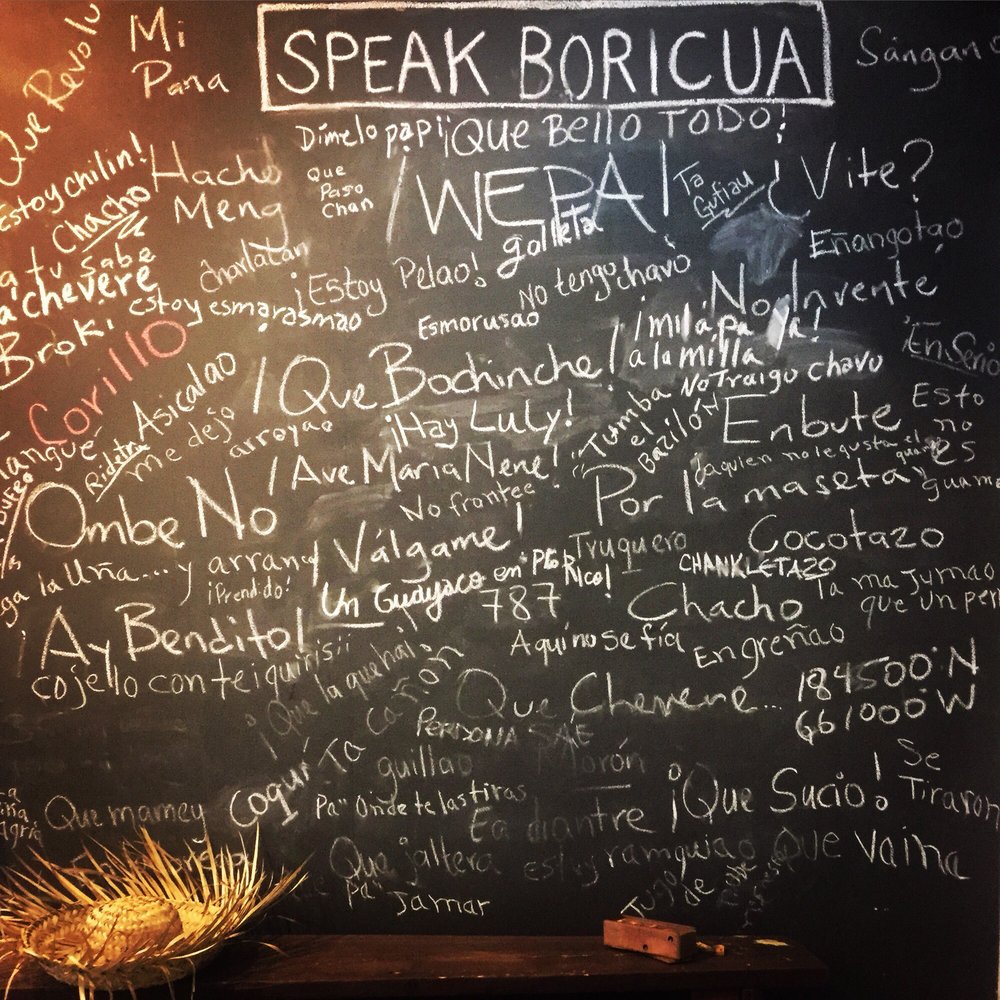 SPEAK BORICUA
Que Revolu
Mi
Pana
Sángano
Dímelo papi
¡QUE BELLO TODO!
Estoy chilin!
Hacho
Meng
Que
Paso
Chan
¡WEPA!
Ta
Gufiau
¿Vite?
Chacho
a tu sabe
a' chevere
charlatán
¡Estoy Pelao!
galleta
Eñangotao
Broki
estoy esmarasmao
NO tengo chavo
No Invente
Esmorusao
¡milá pa 'lá!
¡En Serio
Corillo
Asicalao
¡Que Bochinche!
a la milla
No Traigo chavu
me deja
arroyao
¡Hay Luly!
Tumba
el
Bacilón
Enbute
Esto
no
es
guama
mangue
Ridetra
¡Ave Maria Nene!
¿a quien no le gusta el
Ombe No
No frontee!
Por la maseta
¡Válgame!
Truquero
Cocotazo
ga la uña.... y arranq
¡Prendido!
Un Guayaco en PtoRico!
CHANKLETAZO
787
Chacho
Ta ma jumao
que un per
¡Ay Bendito!
Aqui no se fía
Engreñao
cojello con teiquirisii
¡Que
la que hai!
Ta
cañón
Que Chevere...
184500°N
661000°W
PERDONA SAE
guillao
Morón
Que mamey
Coquí
Pa" Onde te las tiras
Ea diantre
¡Que Sucio!
Se
Tiraron
Que jaltera
estoy ramguiao
Que vaina
Pa" Jamar
Jugo
de